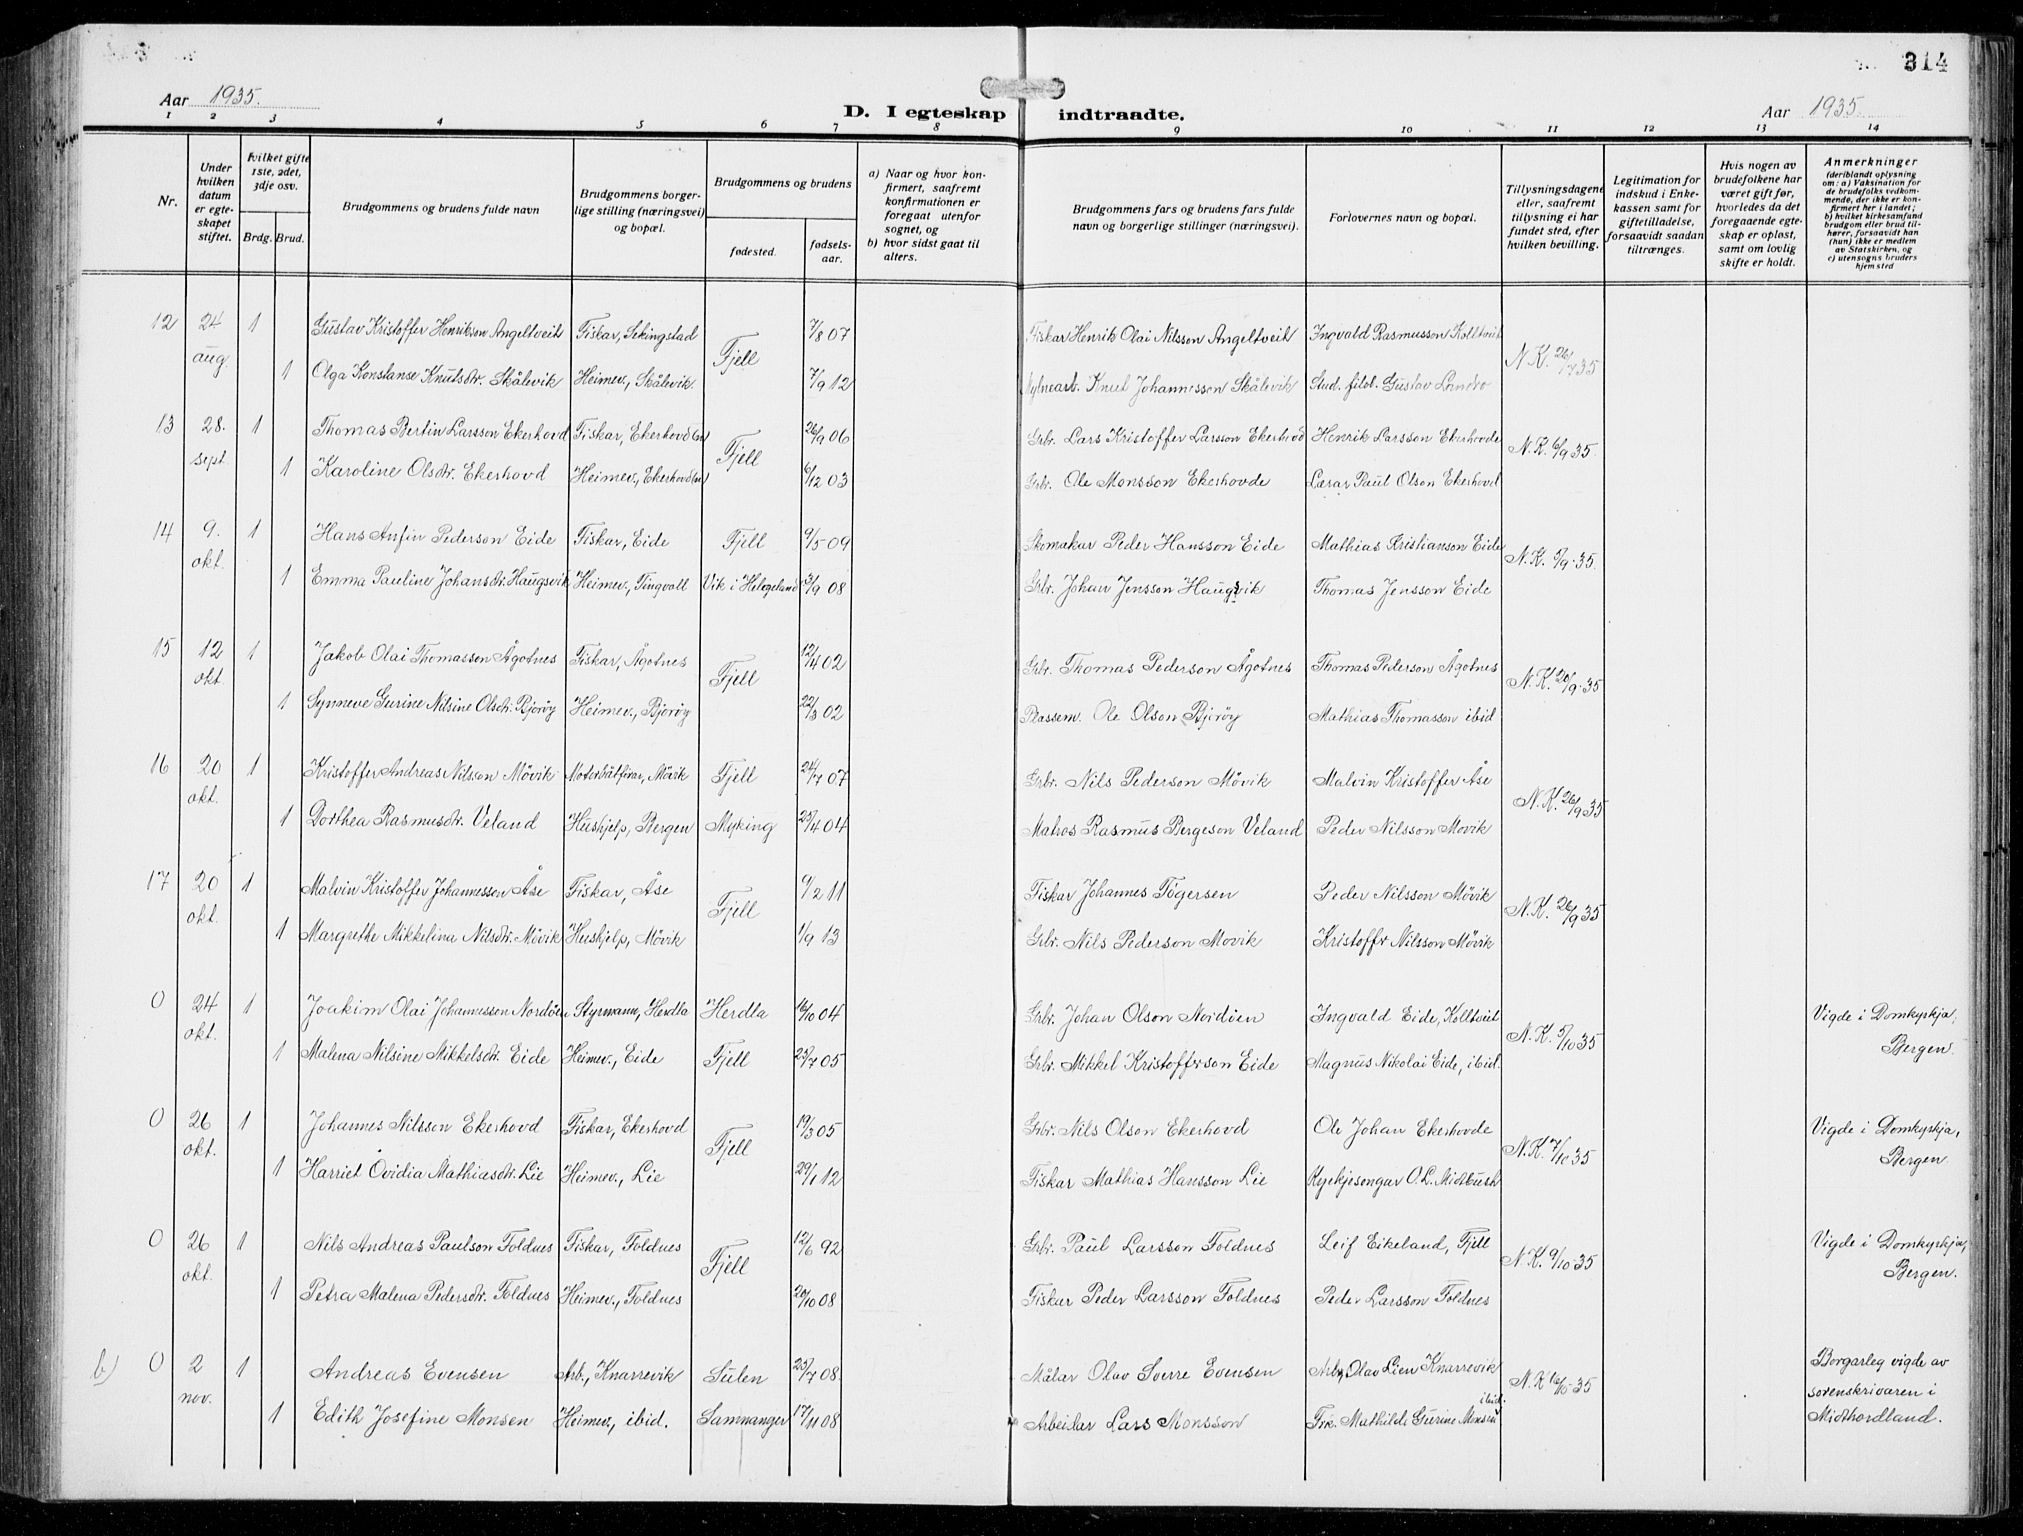 314
Aar 1935.
D. I egteskap indtraadte.
Aar 1935
1 2 3 4 5 6 7 8 9 10 11 12 13 14
Nr.
Under hvilken datum er egteskapet stiftet.
hvilket gifte 1ste, 2det, 3dje osv.
Brdg. Brud.
Brudgommens og brudens fulde navn
Brudgommens borgerlige stilling (næringsvei) og bopæl.
Brudgommens og brudens
fødested.
fødselsaar.
a) Naar og hvor konfirmert, saafremt konfirmationen er foregaat utenfor sognet, og
b) hvor sidst gaat til alters.
Brudgommens fars og brudens fars fulde navn og borgerlige stillinger (næringsvei).
Forlovernes navn og bopæl.
Tillysningsdagene eller, saafremt tillysning ei har fundet sted, efter hvilken bevilling.
Legitimation for indskud i Enkekassen samt for giftetilladelse, forsaavidt saadan tiltrænges.
Hvis nogen av brudefolkene har været gift før, hvorledes da det foregaaende egteskap er opløst, samt om lovlig skifte er holdt.
Anmerkninger (deriblandt oplysning om: a) Vaksination for de brudefolks vedkommende, der ikke er konfirmert her i landet; b) hvilket kirkesamfund brudgom eller brud tilhører, forsaavidt han (hun) ikke er medlem av Statskirken, og c) utensogns bruders hjemsted
12 24 aug. 1 Gustav Kristoffer Henrikson Angeltveit Fiskar, Sekingstad Fjell 7/8 07 Fiskar Henrik Olai Nilsson Angeltveit Ingvald Rasmusson Kolltveit N.K. 26/7 35
1 Olga Konstanse Knutsdtr. Skålevik Heimev., Skålevik 7/9 12 Knut Johannesson Skålevik Stud. filol. Gustav Landro
13 28. sept. 1 Thomas Bertin Larsson Ekerhovd Fiskar, Ekerhovd Fjell 26/9 06 Grbr. Lars Kristoffer Larsson Ekerhovd Henrik Larsson Ekerhovde N.K. 6/9 35.
1 Karoline Olsdtr. Ekerhovd Heimev., Ekerhovd 6/12 03 Grbr. Ole Monsson Ekerhovde Lærar Paul Olson Ekerhovd
14 9. okt. 1 Hans Anfin Pederson Eide Fiskar, Eide Fjell 9/5 09 Skomakar Peder Hansson Eide Mathias Kristianson Eide N.K. 5/9 35.
1 Emma Pauline Johansdtr. Haugsvik Heimev., Tingvoll Vik i Helgeland 3/9 08 Grbr. Johan Jensson Haugsvik Thomas Jensson Eide
15 12 okt 1 Jakob Olai Thomasson Ågotnes Fiskar, Ågotnes Fjell 12/4 02 Grbr. Thomas Pederson Ågotnes Thomas Pederson Ågotnes N.K. 20/9 35
1 Synneve Gurine Nilsine Olsdtr. Bjorøy Heimev., Bjorøy 22/3 02 Plassem. Ole Olson Bjorøy Mathias Thomasson ibid
16 20 okt. 1 Kristoffer Andreas Nilsson Møvik Motorbåtførar, Møvik Fjell 24/7 07 Grbr. Nils Pederson Møvik Malvin Kristoffer Åse N.K. 26/9 35
1 Dorthea Rasmusdtr. Veland Hushjelp, Bergen Myking 25/4 04 Matros Rasmus Bergeson Veland Peder Nilsson Movik
17 20 okt. 1 Malvin Kristoffer Johannesson Åse Fiskar, Åse Fjell 9/2 11 Fiskar Johannes Tøgersen Peder Nilsson Møvik N.K. 26/9 35
1 Margrethe Mikkelina Nilsdtr. Møvik Hushjelp, Møvik 1/9 13 Grbr. Nils Pederson Movik Kristoffr Nilsson Møvik
0 24 okt. 1 Joakim Olai Johannesson Nordøen Styrmann, Herdla Herdla 16/10 04 Grbr. Johan Olson Nordøen Ingvald Eide, Kolltveit N.K. 5/10 35 Vigde i Domkyrkja, Bergen.
1 Malena Nilsine Mikkelsdtr. Eide Heimev., Eide Fjell 23/7 05 Grbr. Mikkel Kristofferson Eide Magnus Nikolai Eide, ibid.
0 26 okt. 1 Johannes Nilsson Ekerhovd Fiskar, Ekerhovd Fjell 19/3 05 Grbr. Nils Olson Ekerhovd Ole Johan Ekerhovde N.K. 7/10 35 Vigde i Domkyrkja, Bergen.
1 Harriet Ovidia Mathiasdtr. Lie Heimev., Lie 29/1 12 Fiskar Mathias Hansson Lie Kyrkjesongar O.L. Midtbust
0 26 okt. 1 Nils Andreas Paulson Foldnes Fiskar, Foldnes Fjell 12/6 92 Grbr. Paul Larsson Foldnes Leif Eikeland, Fjell N.K. 9/10 35 Vigde i Domkyrkja, Bergen.
1 Petra Malena Pedersdtr. Foldnes Heimev., Foldnes 20/10 08 Fiskar Peder Larsson Foldnes Peder Larsson Foldnes
b) 0 2 nov. 1 Andreas Evensen Arb., Knarrevik Sulen 23/7 08. Målar Olav Sverre Evensen Arb. Olav Lien Knarrevik N.K. 16/10 35 Borgarleg vigde av sorenskrivaren i Midthordland.
1 Edith Josefine Monsen Heimev., ibid. Samnanger 17/11 08 Arbeidar Lars Monsson Frk. Mathilde Gurine Monsen ibid.